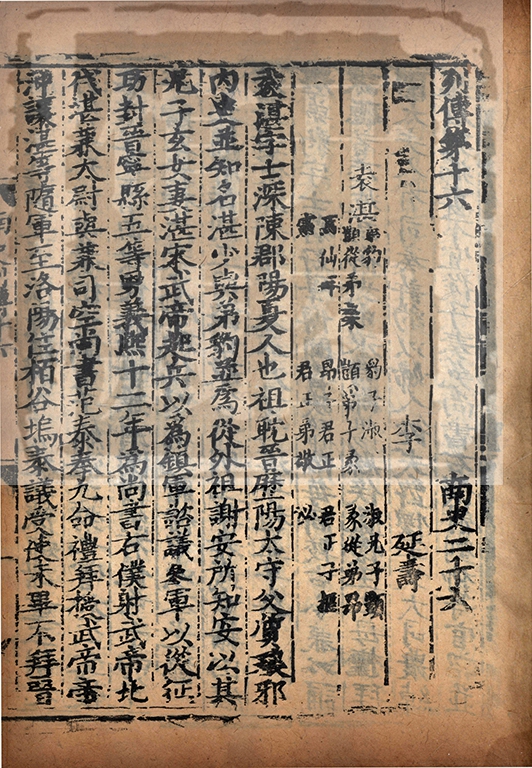 列傳第十六 南史二十六
李 延壽
袁湛 弟豹 豹子淑 淑兄子顗
顗從弟粲 顗弟子彖 彖從弟昂
馬仙琕 昂子君正 君正子樞
憲 君正弟敬 泌
袁湛字士深陳郡陽夏人也祖耽晉歷陽太守父質琅邪
內史並知名湛少與弟豹並爲從外祖謝安所知安以其
兄子玄女妻湛宋武帝起兵以為鎮軍諮議參軍以從征
功封晉寧縣五等男義熙十二年爲尚書右僕射武帝北
伐湛兼太尉與兼司空尚書范泰奉九命禮拜授武帝帝
沖讓湛等隨軍至洛陽住柏谷塢泰議受使未畢不拜晉